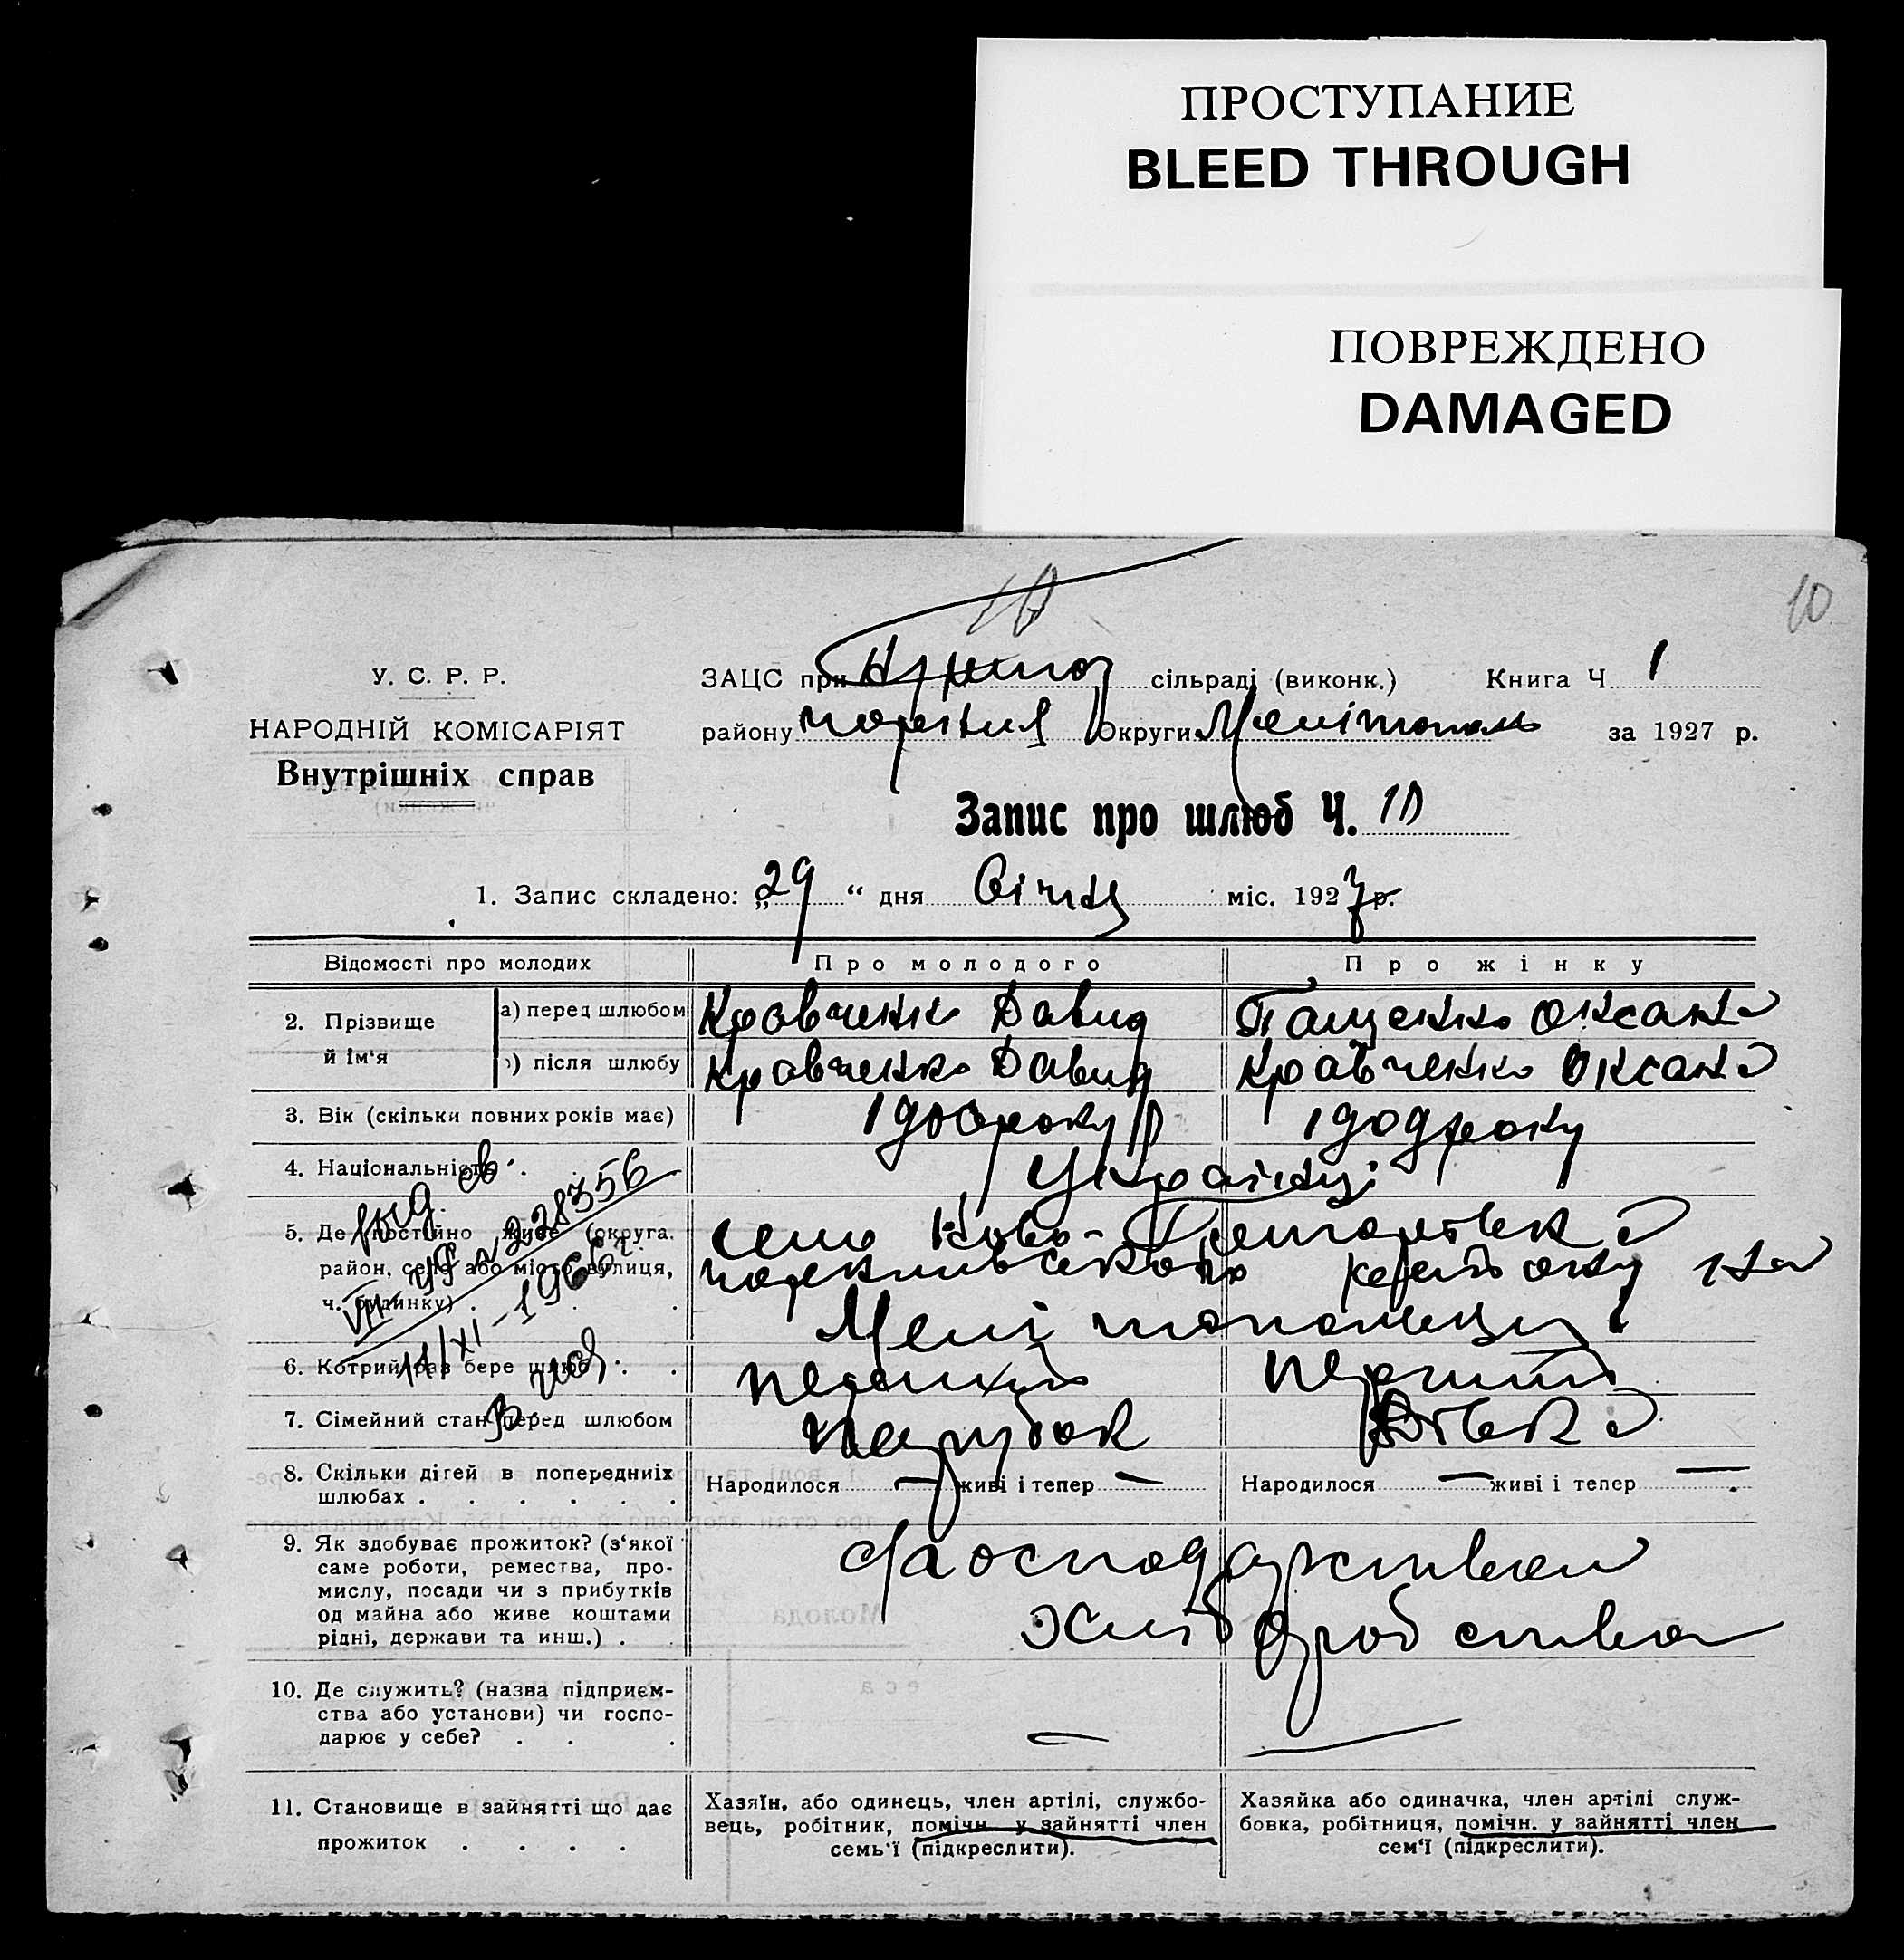 ПРОСТУПАНИЕ
BLEED THROUGH
ПОВРЕЖДЕНО
DAMAGED
10
10
У. С. Р. Р.
НАРОДНІЙ КОМІСАРІЯТ
Внутрішніх справ
ЗАЦС при сільраді (виконк.) Книга Ч 1
району округи Меліtополь за 1927 р.
Запис про шлюб Ч. 10
1. Запис складено: „29“ дня Січня міс. 1927 р.
Відомості про молодих Про молодого Про жінку
2. Прізвище й ім'я
а) перед шлюбом Кравченко Давид Пащенко Оксана
б) після шлюбу Кравченко Давид Кравченко Оксана
3. Вік (скільки повних років має) року 1909 року
4. Національність . Українці
5. Де постійно живе (округа, район, село або місто, вулиця, ч. будинку) . .
село Ново-
Мелітопольщині
выд. св.
VII-УЯ № 228356
11/XI-1966 г.
6. Котрий раз бере шлюб . . Перший Перший
7. Сімейний стан перед шлюбом парубок Дівка
8. Скільки дітей в попередніїх шлюбах . . . . . .
Народилося — живі і тепер — Народилося — живі і тепер —
9. Як здобуває прожиток? (з'якої саме роботи, ремества, промислу, посади чи з прибутків од майна або живе коштами рідні, держави та инш.) .
10. Де служить? (назва підприємства або установи) чи господарює у себе? . . . — —
11. Становище в зайнятті що дає прожиток . . . .
Хазяїн, або одинець, член артілі, службо-
вець, робітник, помічн. у зайнятті член
семь'ї (підкреслити).
Хазяйка або одиначка, член артілі служ-
бовка, робітниця, помічн. у зайнятті член
сем'ї (підкреслити).